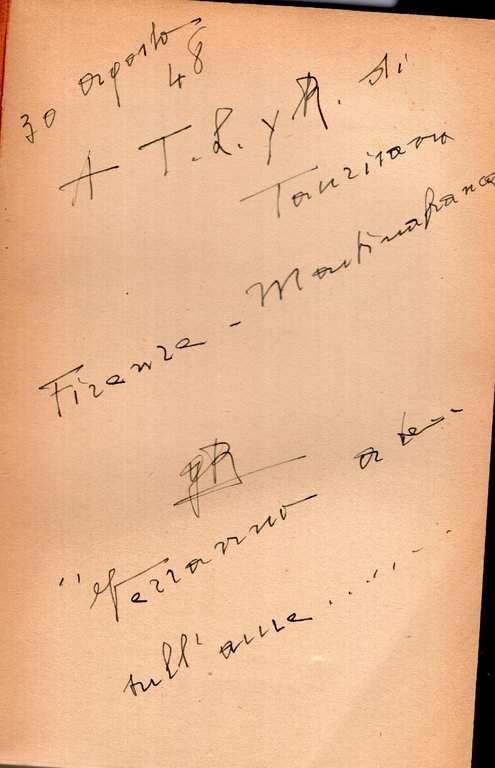 30 agosto
48
A T. L. y R. di
Tanzisaru
Firenze - Martinafranca
"Verranno a te
sull'aure.......